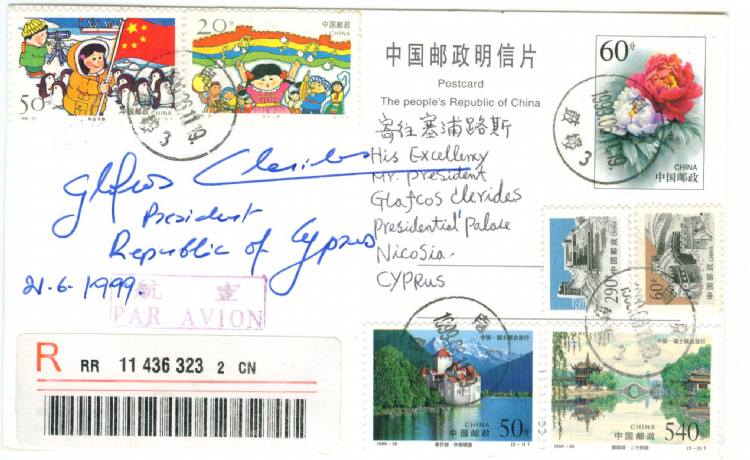 50分
中国邮政
CHINA
20分
中国邮政
CHINA
中国邮政明信片
Postcard
The people's Republic of China
60分
CHINA
中国邮政
寄往塞浦路斯
His Excellency
Mr. president
Glafcos Clerides
Presidential Palace
Nicosia,
CYPRUS
Glafcos Clerides
President
Republic of Cyprus
21.6.1999.
航空
PAR AVION
R RR 11 436 323 2 CN
290
中国邮政
60分
中国邮政
中国·瑞士联合发行
50分
CHINA
中国邮政
1998-26
(2-1)T
中国·瑞士联合发行
CHINA
中国邮政
540分
1998-26
(2-2)T